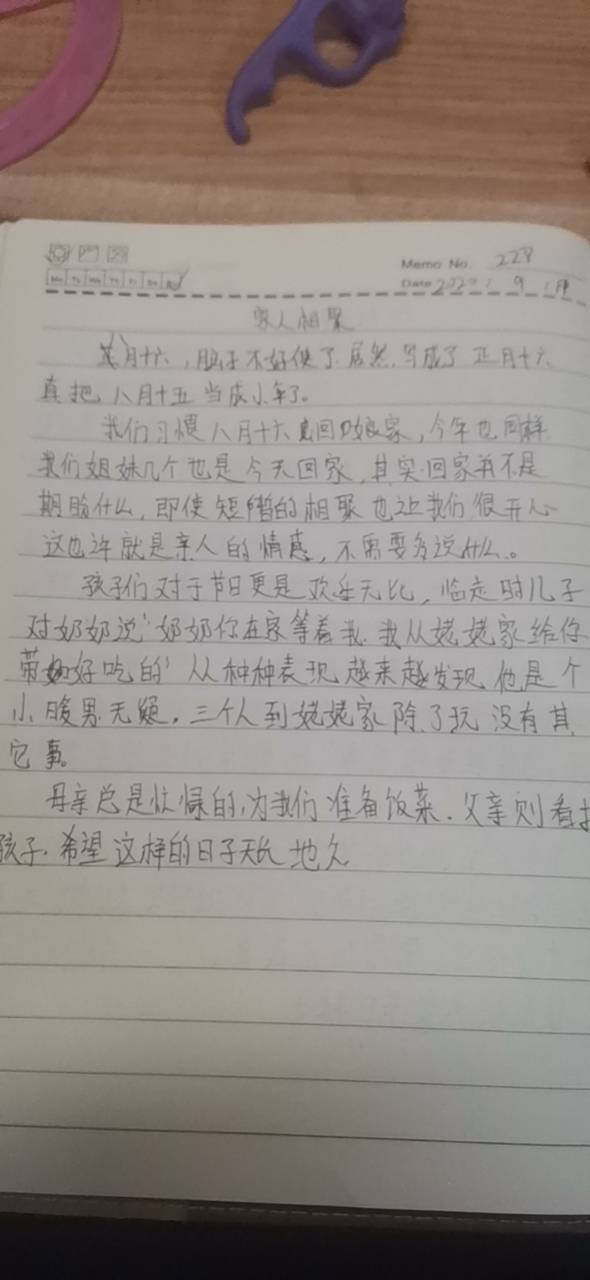 Memo No. 228
Date 202 . 9 . 1
家人相聚
八月十六，脑子不好使了居然写成了正月十六
真把八月十五当成小年了。
我们习惯八月十六回娘家，今年也同样
我们姐妹几个也是今天回家，其实回家并不是
期盼什么，即使短暂的相聚也让我们很开心
这也许就是亲人的情感，不需要多说什么。
孩子们对于节日更是欢乐无比，临走时儿子
对奶奶说"奶奶你在家等着我，我从姥姥家给你
带好吃的"从种种表现越来越发现他是个
小暖男无疑。三个人到姥姥家除了玩没有其
它事。
母亲总是忙碌的，为我们准备饭菜．父亲则看护
孩子．希望这样的日子天长地久